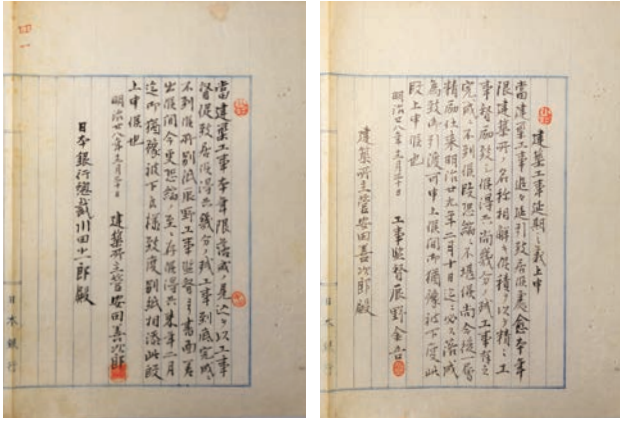 建築工事延期之義上申
當建築工事追々延引致居候處愈本年
限建築所ノ名称相解候積リヲ以テ精々工
事督励致シ候得共尚幾分ノ残工事有之
完成ニ不到候段恐縮ニ不堪候尚今後一層
精励仕来明治廿九年二月十日迄ニハ必ス落成
為致御引渡可申上候間御猶豫被下度此
段上申候也
明治廿八年十二月三十日 工事監督辰野金吾
建築所主管安田善次郎殿
日本銀行
當建築工事本年限落成見込ヲ以工事
督促致居候得共幾分ノ残工事到底完成ニ
不到候所別紙辰野工事監督ヨリ書面差
出候間今更恐縮ノ至ニ存候得共来年二月
迄御猶豫被下候様致度別紙相添此段
上申候也
明治廿八年十二月三十日 建築所主管安田善次郎
日本銀行總裁川田小一郎殿
日本銀行